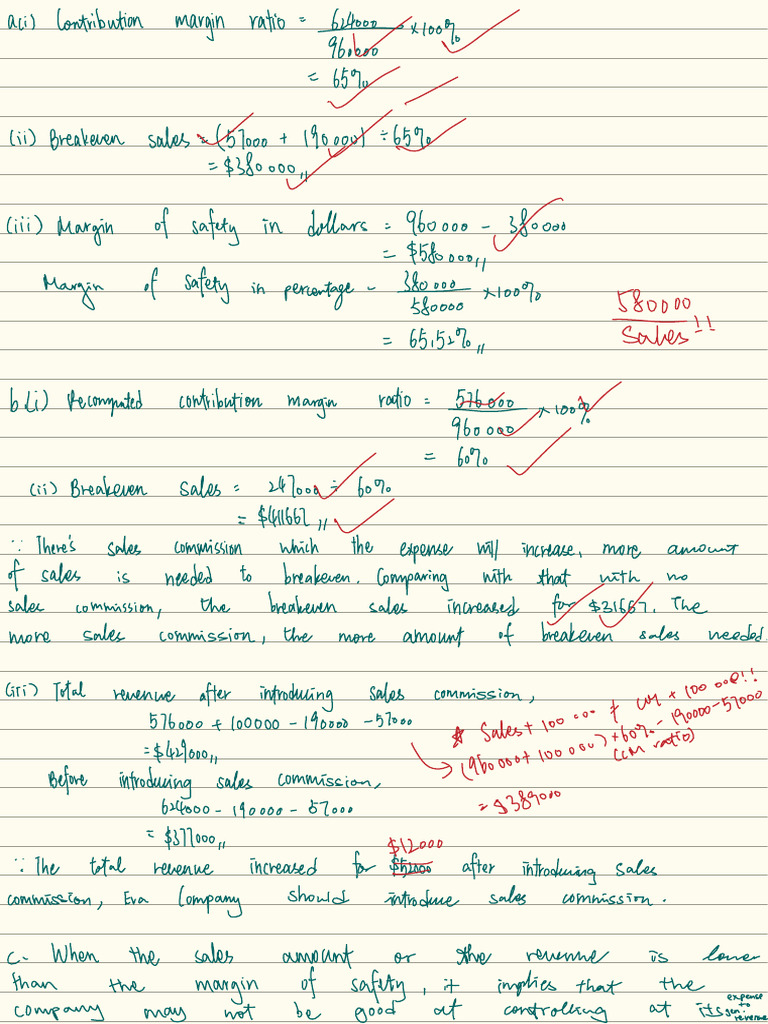 a(i) Contribution margin ratio = 624000/960000 × 100%
= 65%
(ii) Breakeven sales = (57000 + 190000) ÷ 65%
= $380000,,
(iii) Margin of safety in dollars = 960000 - 380000
= $580000,,
Margin of safety in percentage = 380000/580000 × 100%
580000/Sales !!
= 65.52%,,
b.(i) Recomputed contribution margin ratio = 576000/960000 × 100%
= 60%
(ii) Breakeven sales = 247000 ÷ 60%
= $411667,,
∵ There's sales commission which the expense will increase, more amount
of sales is needed to breakeven. Comparing with that with no
sales commission, the breakeven sales increased for $31667. The
more sales commission, the more amount of breakeven sales needed.
(iii) Total revenue after introducing sales commission,
576000 + 100000 - 190000 - 57000
* Sales + 100 000 ≠ CM + 100 000!!
→ (960000 + 100 000) × 60% - 190000 - 57000
(CM ratio)
= $429000,,
= $389000
Before introducing sales commission,
624000 - 190000 - 57000
= $377000,,
$12000
∵ The total revenue increased for $52000 after introducing sales
commission, Eva Company should introduce sales commission.
c. When the sales amount or the revenue is lower
than the margin of safety, it implies that the
company may not be good at controlling at its expense to gen. revenue